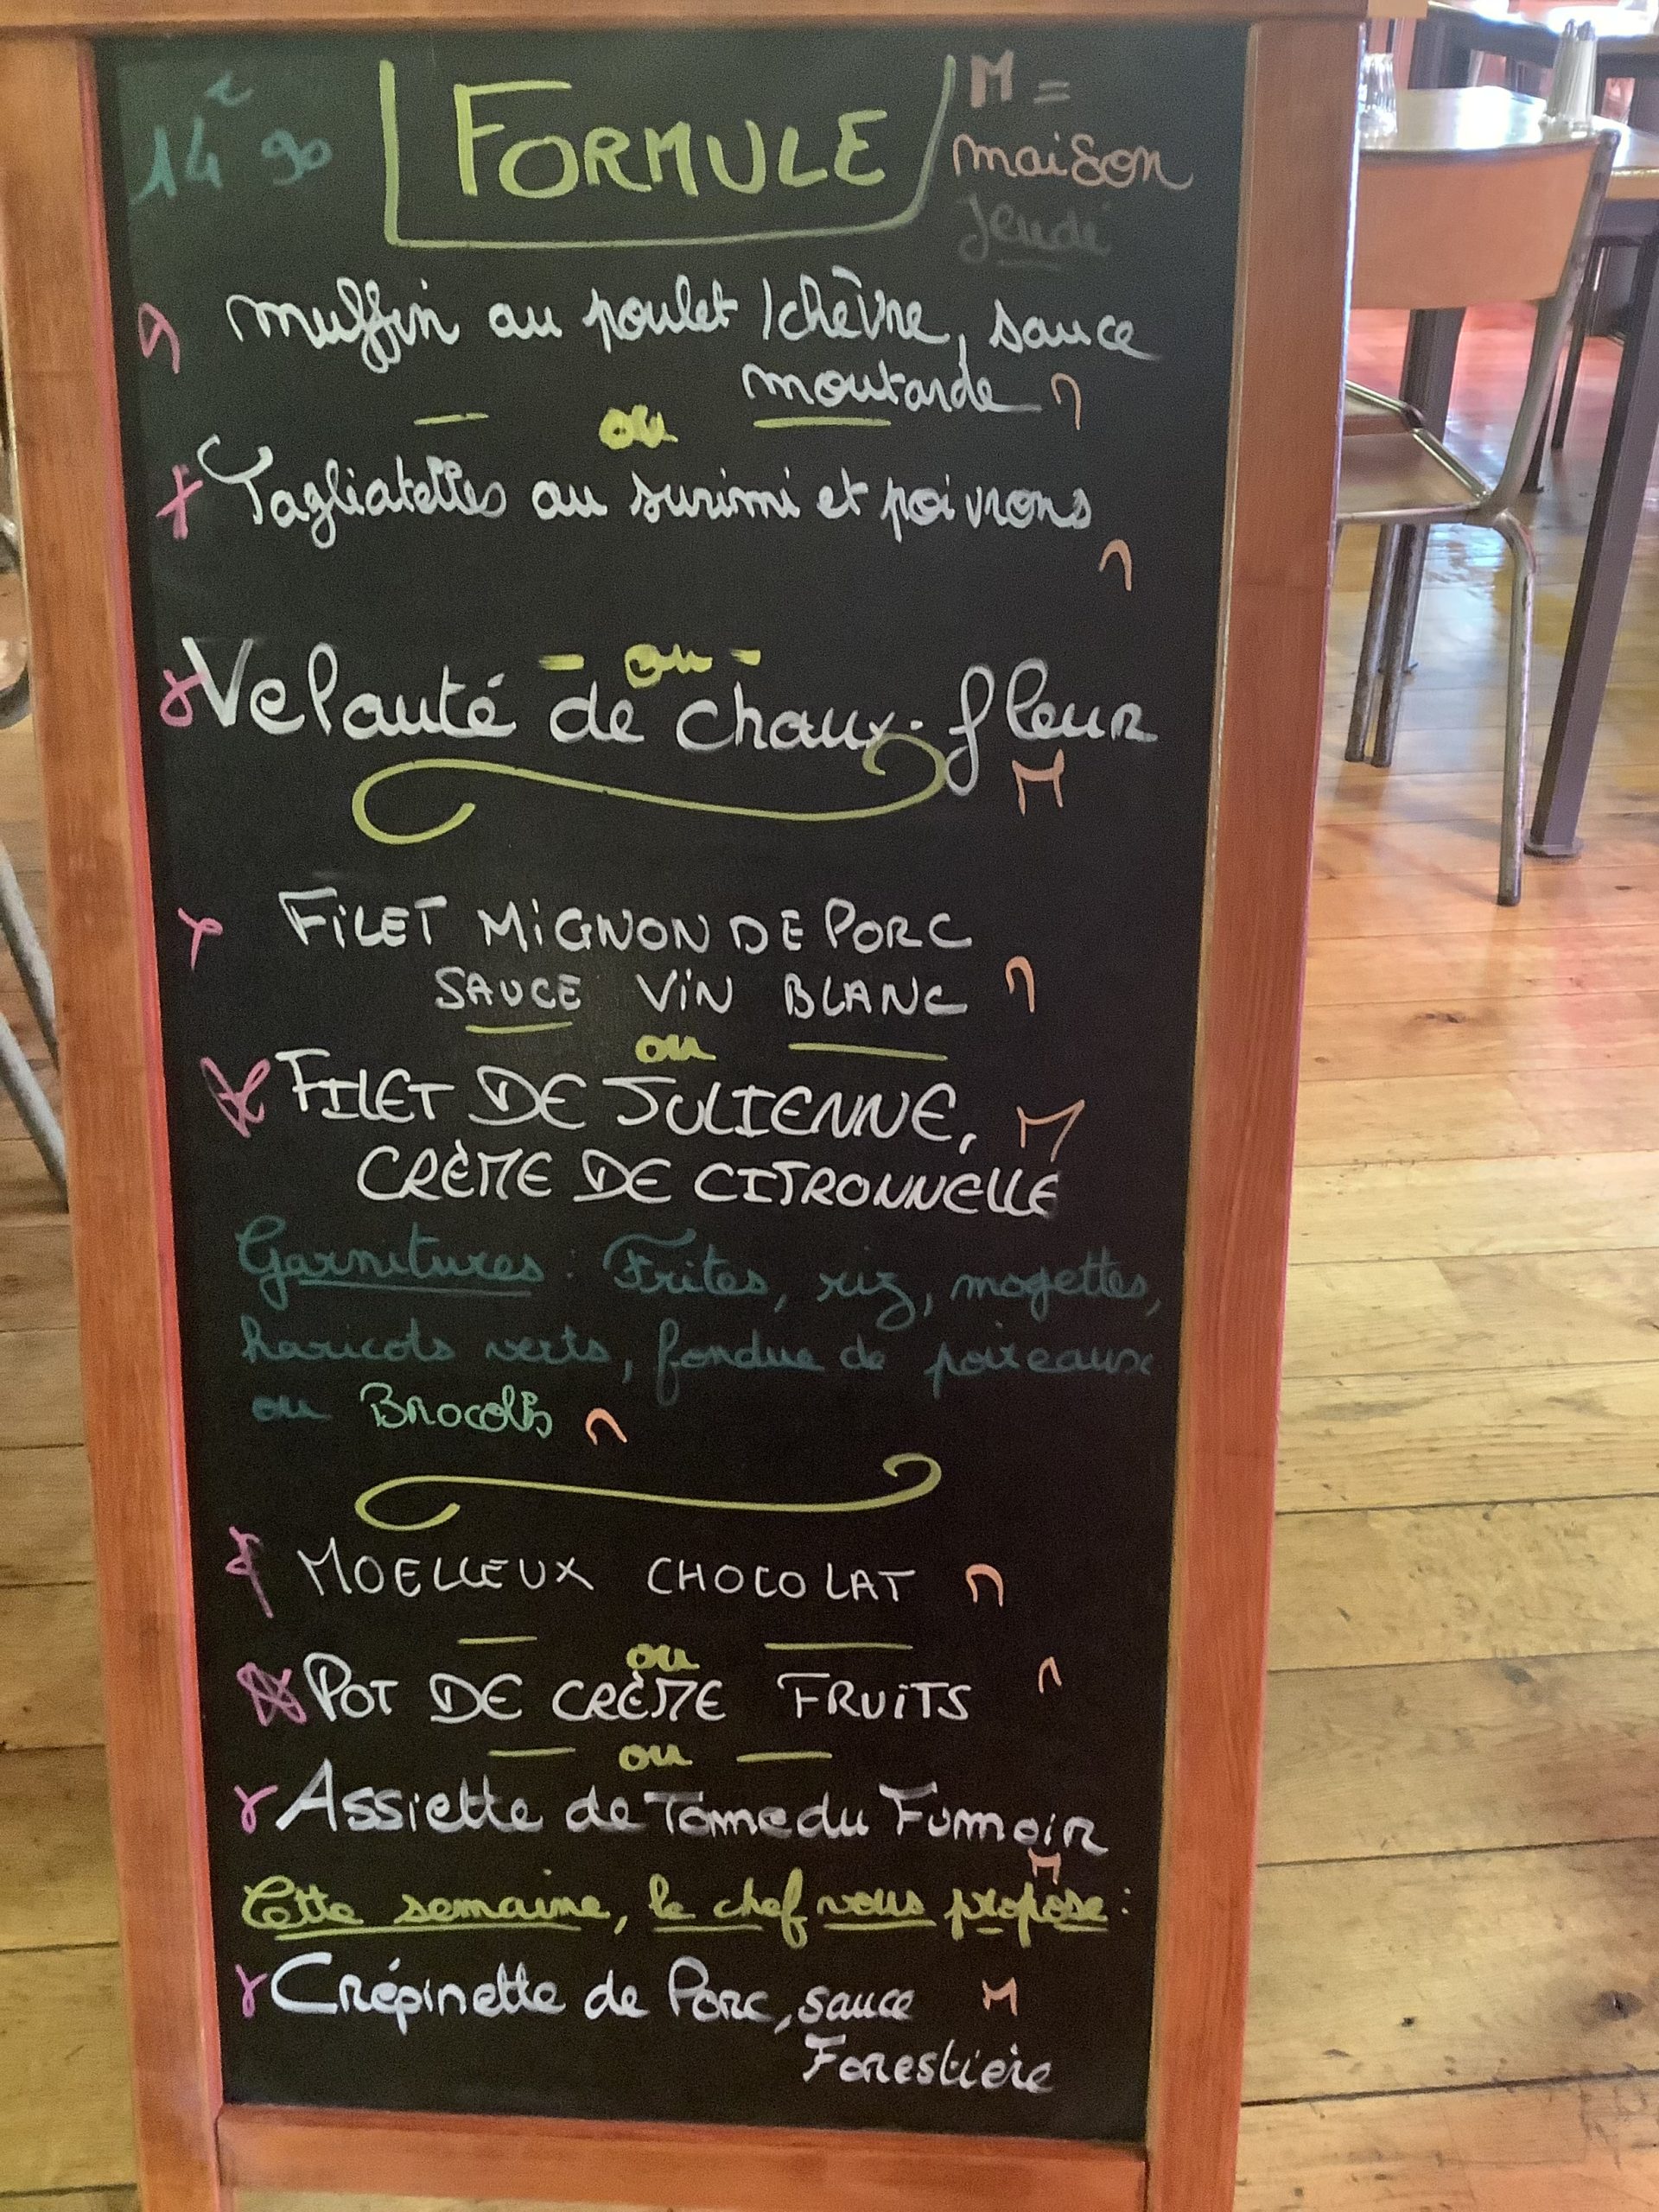 14€90 FORMULE M =
maison
Jeudi
Muffin au poulet / chèvre, sauce
moutarde M
— ou —
Tagliatelles au surimi et poivrons
M
- ou -
Velouté de chaux-fleur
M
FiLET MiGNON DE PORC
SAUCE ViN BLANC M
ou
FILET DE JULIENNE, M
CRÈME DE CITRONNELLE
Garnitures : Frites, riz, mogettes,
haricots verts, fondue de poireaux
ou Brocolis M
MOELLEUX CHOCOLAT M
— ou —
POT DE CRÈME FRUiTS M
— ou —
Assiette de Tome du Fumoir
M
Cette semaine, le chef vous propose :
Crépinette de Porc, sauce M
Forestière